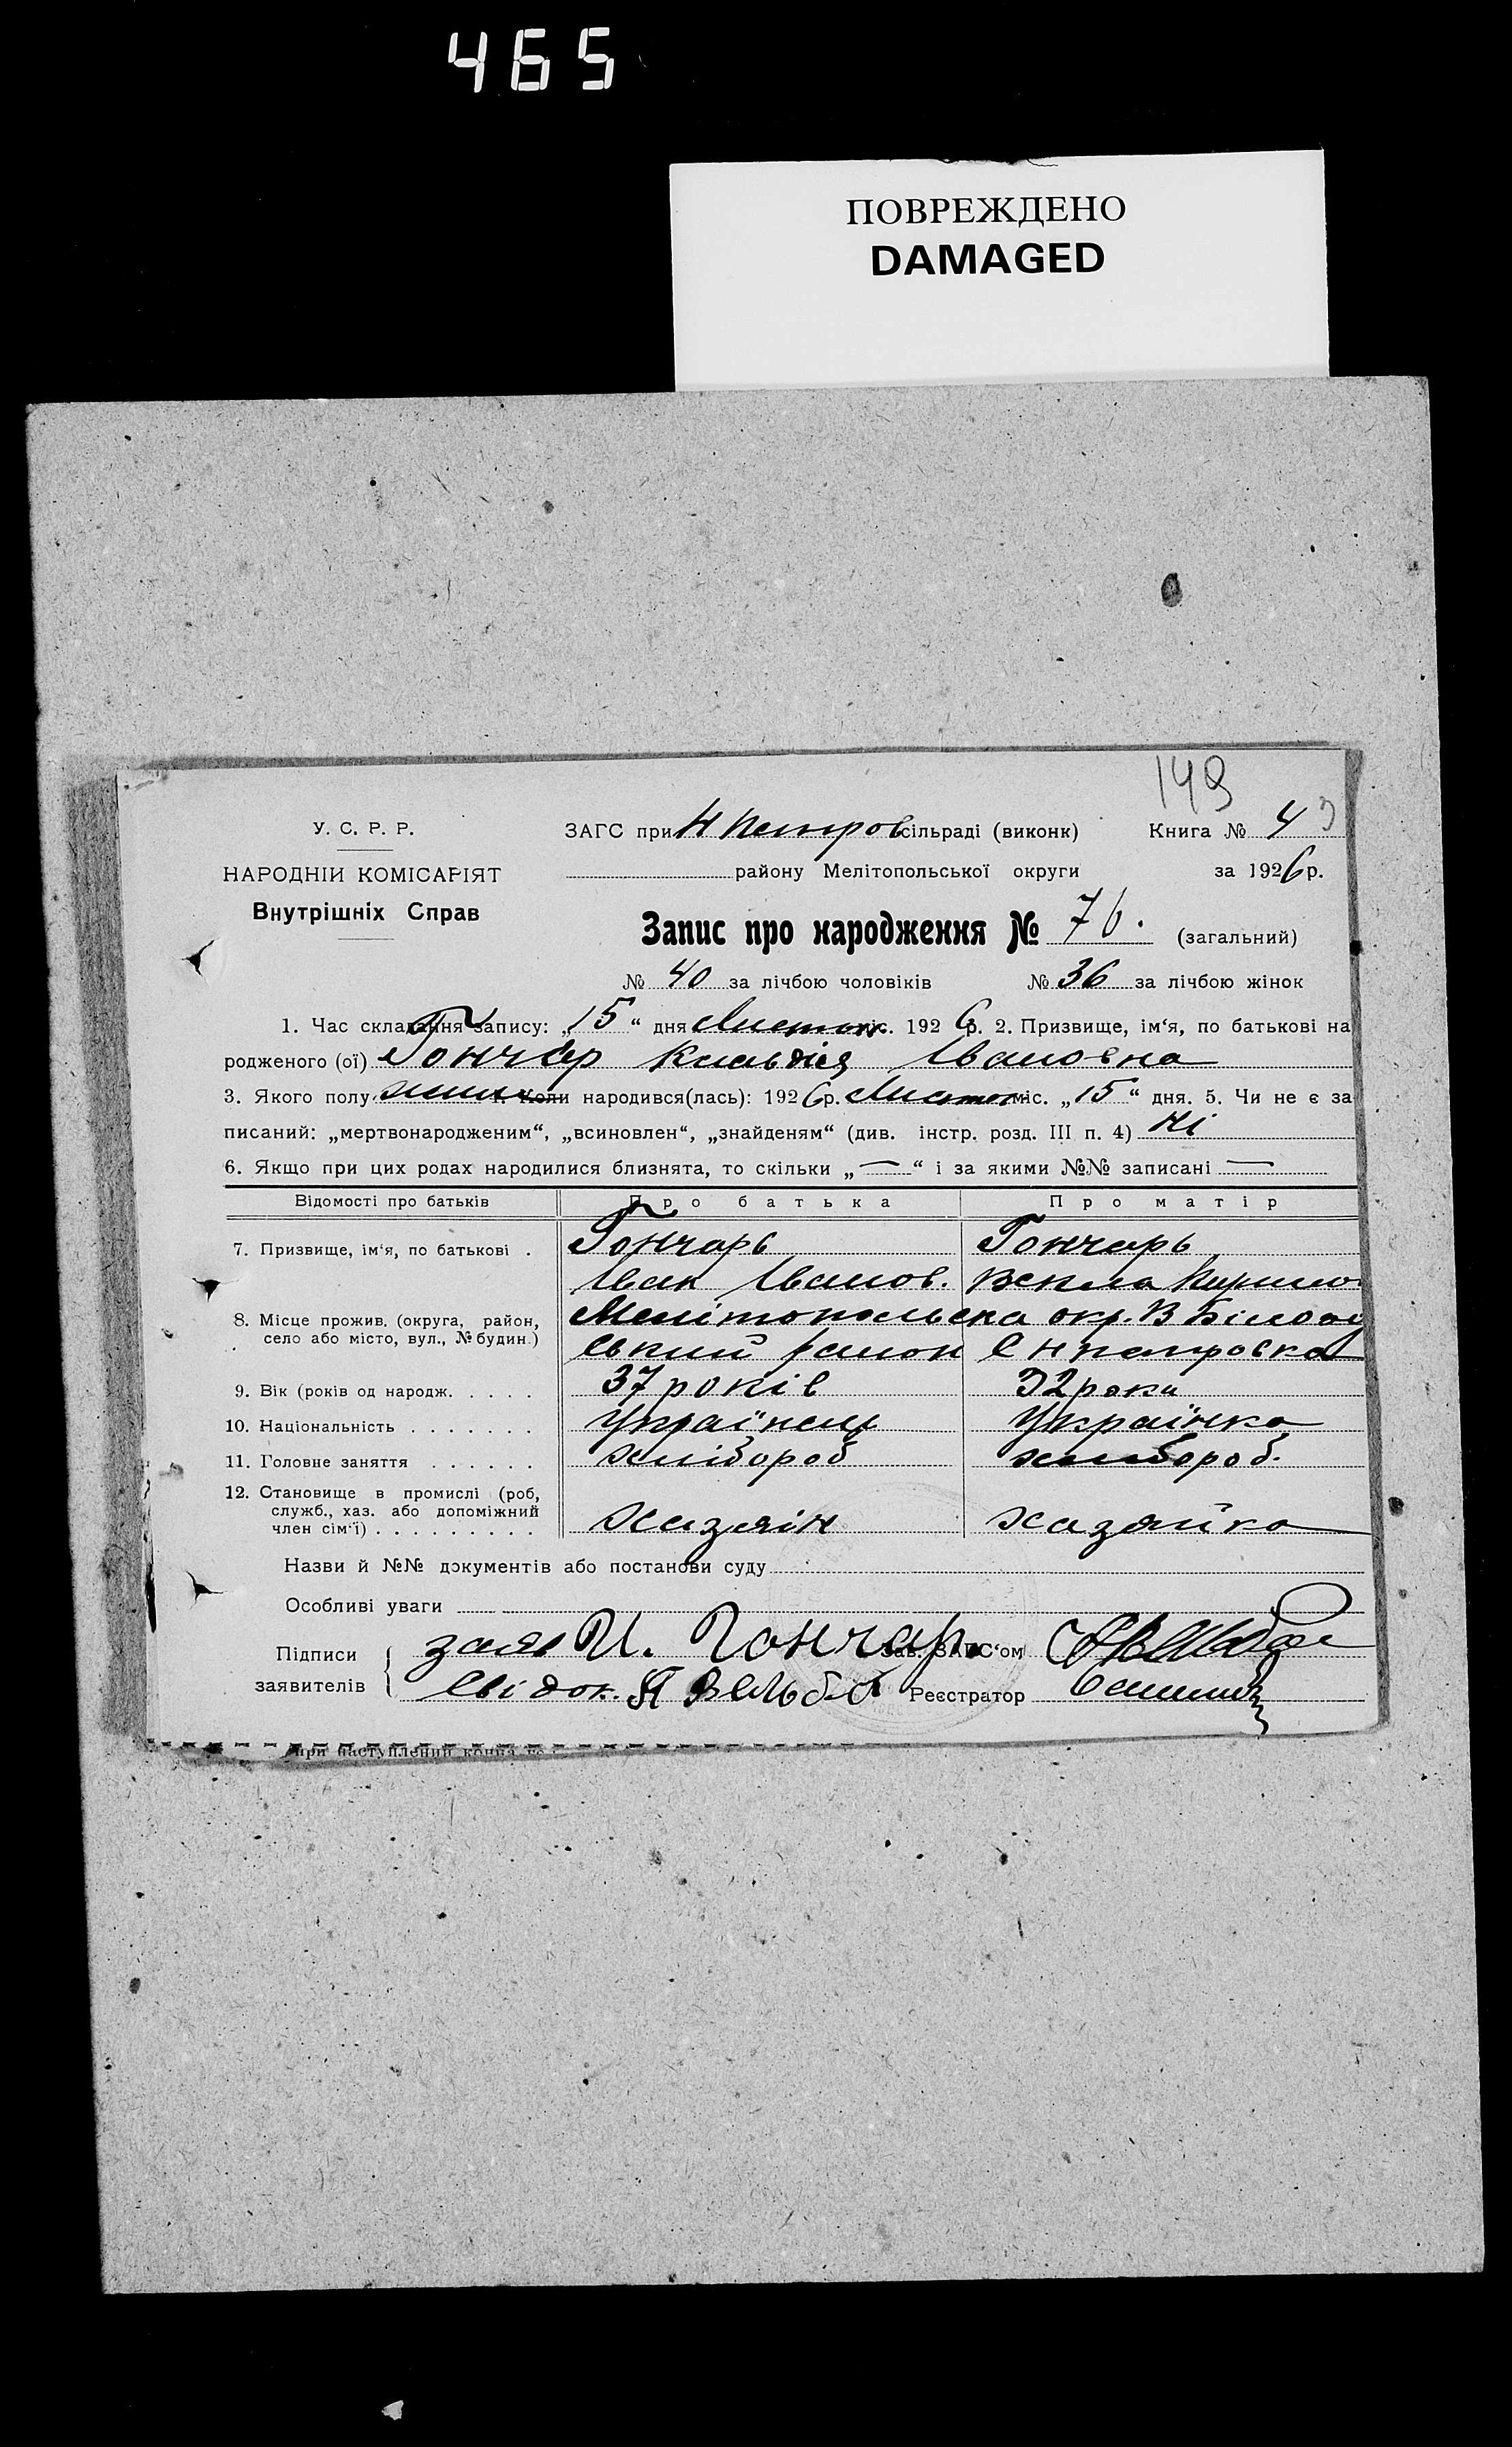 465
ПОВРЕЖДЕНО
DAMAGED
149
У. С. Р. Р.
ЗАГС при Н Петров сільраді (виконк) Книга № 4
НАРОДНІЙ КОМІСАРІЯТ
району Мелітопольської округи за 1926 р.
Внутрішніх Справ
Запис про народження № 76. (загальний)
№ 40 за лічбою чоловіків № 36 за лічбою жінок
1. Час складання запису: „15“ дня Листоп міс. 1926 р. 2. Призвище, ім‘я, по батькові на
родженого (ої) Гончар Клавдія Івановна
3. Якого полу жіноч 4. Коли народився(лась): 1926 р. Листоп міс. „15“ дня. 5. Чи не є за
писаний: „мертвонародженим“, „всиновлен“, „знайденям“ (див. інстр. розд. III п. 4) Ні
6. Якщо при цих родах народилися близнята, то скільки „—“ і за якими №№ записані —
Відомості про батьків Про батька Про матір
7. Призвище, ім‘я, по батькові . Гончарь Гончарь
Іван Іванов. Векла Кирило
8. Місце прожив. (округа, район, Мелітопольська окр. В Білозі
село або місто, вул., № будин.)
ський район с Н петровка
9. Вік (років од народж. . . . . 37 років 32 роки
10. Національність . . . . . . . Українець Українка
11. Головне заняття . . . . . . хлібороб хлібороб.
12. Становище в промислі (роб,
служб., хаз. або допоміжний
член сім‘ї) . . . . . . . . . Хазяїн хазяйка
Назви й №№ документів або постанови суду
Особливі уваги
Підписи заяв И. Гончар. Зав. ЗАГС‘ом
заявителів Свідок. П Вельбо Реєстратор
при наступлении конца